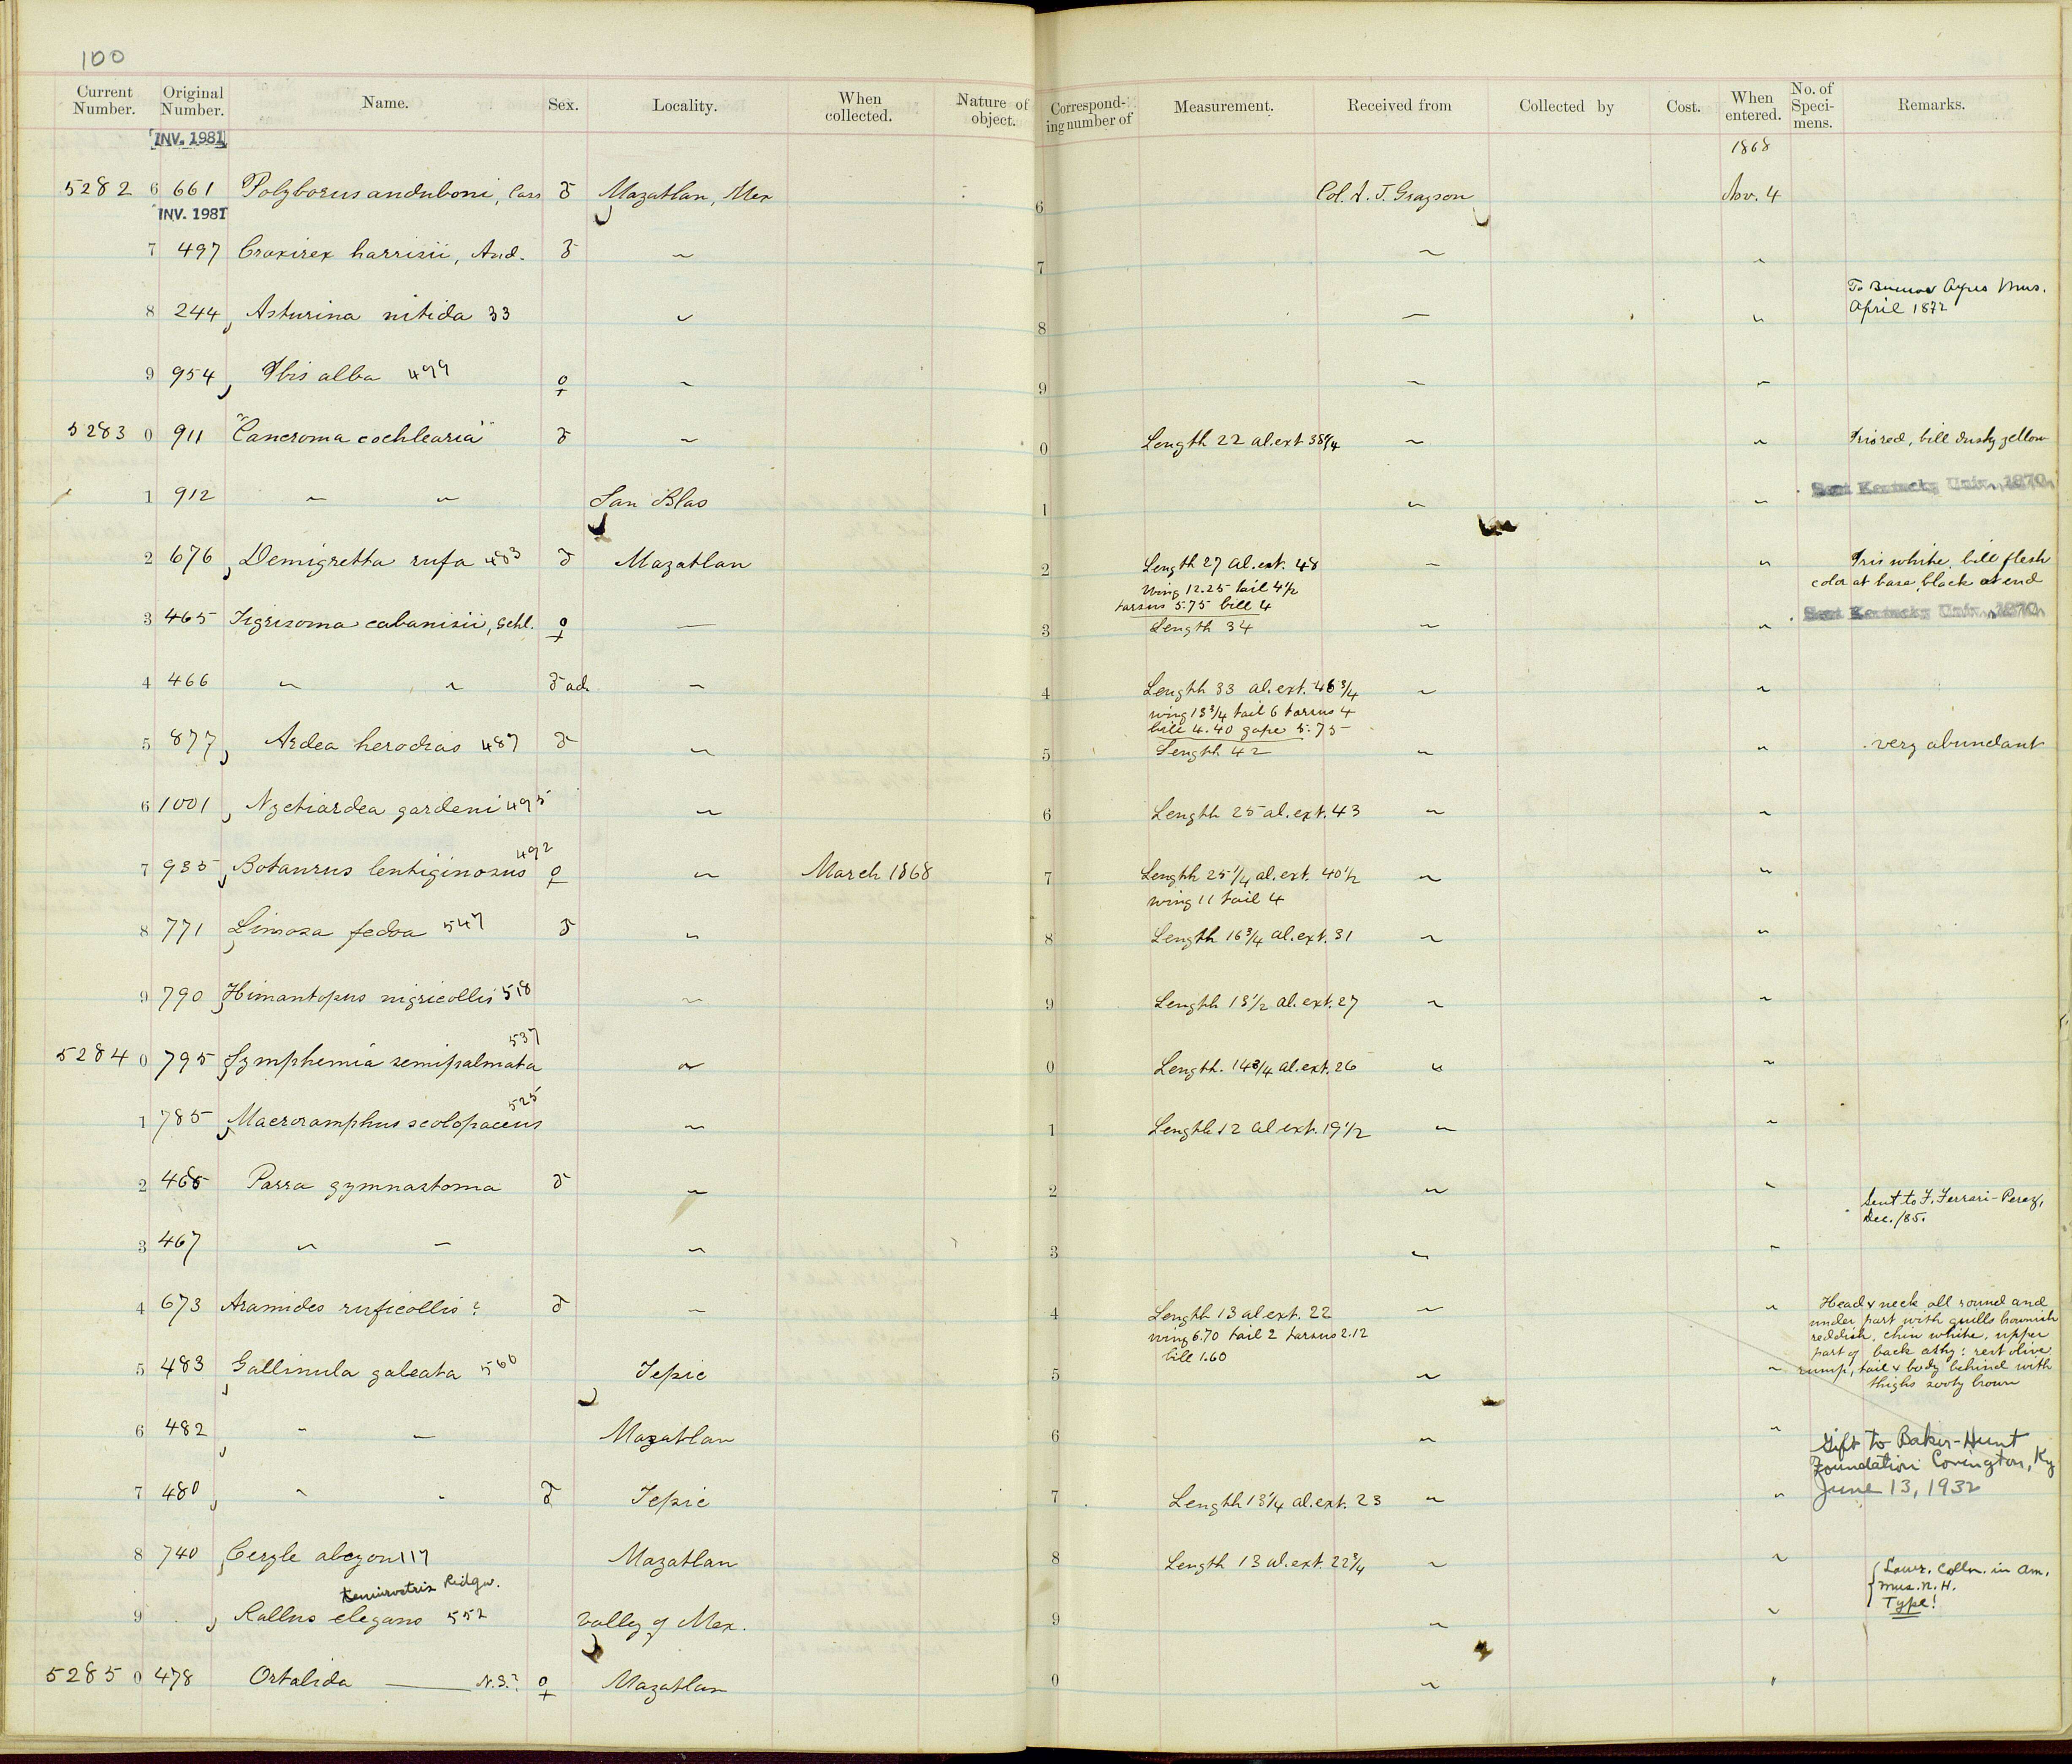 100
Current Number. Original Number. Name. Sex. Locality. When collected. Nature of object. Correspond-ing number of Measurement. Received from Collected by Cost. When entered. No. of Speci-mens. Remarks.
INV. 1981
1868
5282 6 661 Polyborus auduboni, Cass ♂ Mazatlan, Mex 6 Col. A. J. Grayson Nov. 4
INV. 1981
7 497 Craxirex harrisii, Aud. ♂ " 7 " "
To Buenos Ayres Mus.
8 244, Asturina nitida 33 " 8 " " April 1872
9 954, Ibis alba 499 ♀ " 9 " "
5283 0 911 "Cancroma cochlearia" ♂ " 0 Length 22 al. ext 38¼ " " Iris red, bill dusky yellow
1 912 " " San Blas 1 " " Sent Kentucky Univ., 1870.
2 676, Demigretta rufa 483 ♂ Mazatlan 2 Length 27 al. ext. 48 " " Iris white, bill flesh
wing 12.25 tail 4½ color at base, black at end
tarsus 5.75 bill 4
3 465 Tigrisoma cabanisii, Schl. ♀ " 3 Length 34 " " Sent Kentucky Univ., 1870.
4 466 " " ♂ ad. " 4 Length 33 al. ext. 46¾ " "
wing 13¾ tail 6 tarsus 4
bill 4.40 gape 5.75
5 877, Ardea herodias 487 ♂ " 5 Length 42 " " very abundant
6 1001, Nyctiardea gardeni 495 " 6 Length 25 al. ext. 43 " "
492
7 935, Botaurus lentiginosus ♀ " March 1868 7 Length 25¼ al. ext. 40½ " "
wing 11 tail 4
8 771, Limosa fedoa 547 ♂ " 8 Length 16¾ al. ext. 31 " "
9 790, Himantopus nigricollis 518 " 9 Length 13½ al. ext. 27 " "
537
5284 0 795, Symphemia semipalmata " 0 Length. 14¾ al. ext. 26 " "
525
1 785, Macroramphus scolopaceus " 1 Length 12 al ext. 19½ " "
2 466 Parra gymnastoma ♂ " 2 " "
Sent to F. Ferrari-Perez,
Dec. /85.
3 467 " " " 3 " "
4 673 Aramides ruficollis? ♂ " 4 Length 13 al ext. 22 " " Head & neck all round and
wing 6.70 tail 2 tarsus 2.12 under part with quills brownish
bill 1.60 reddish, chin white, upper
part of back ashy: rest olive
5 483, Gallinula galeata 560 Tepic 5 " " rump, tail & body behind with
thighs sooty brown
6 482, " " Mazatlan 6 " "
Gift to Baker-Hunt
Foundation Covington, Ky
7 480, " " ♂ Tepic 7 Length 13¼ al. ext. 23 " " June 13, 1932
8 740, Ceryle alcyon 117 Mazatlan 8 Length 13 al. ext. 22¾ " "
tenuirostris Ridgw.
{Lawr. Colln. in Am.
Mus. N. H.
Type!
9 , Rallus elegans 552 Valley of Mex. 9 " "
5285 0 478 Ortalida ——— N.S.? ♀ Mazatlan 0 " "